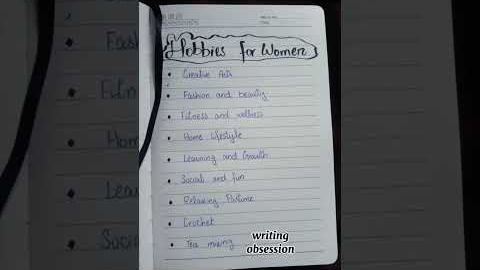 Hobbies for Women
Creative Arts
Fashion and beauty
Fitness and wellness
Home Lifestyle
Learning and Growth
Social and fun
Relaxing Pastime
Crochet
Tea making
writing
obsession